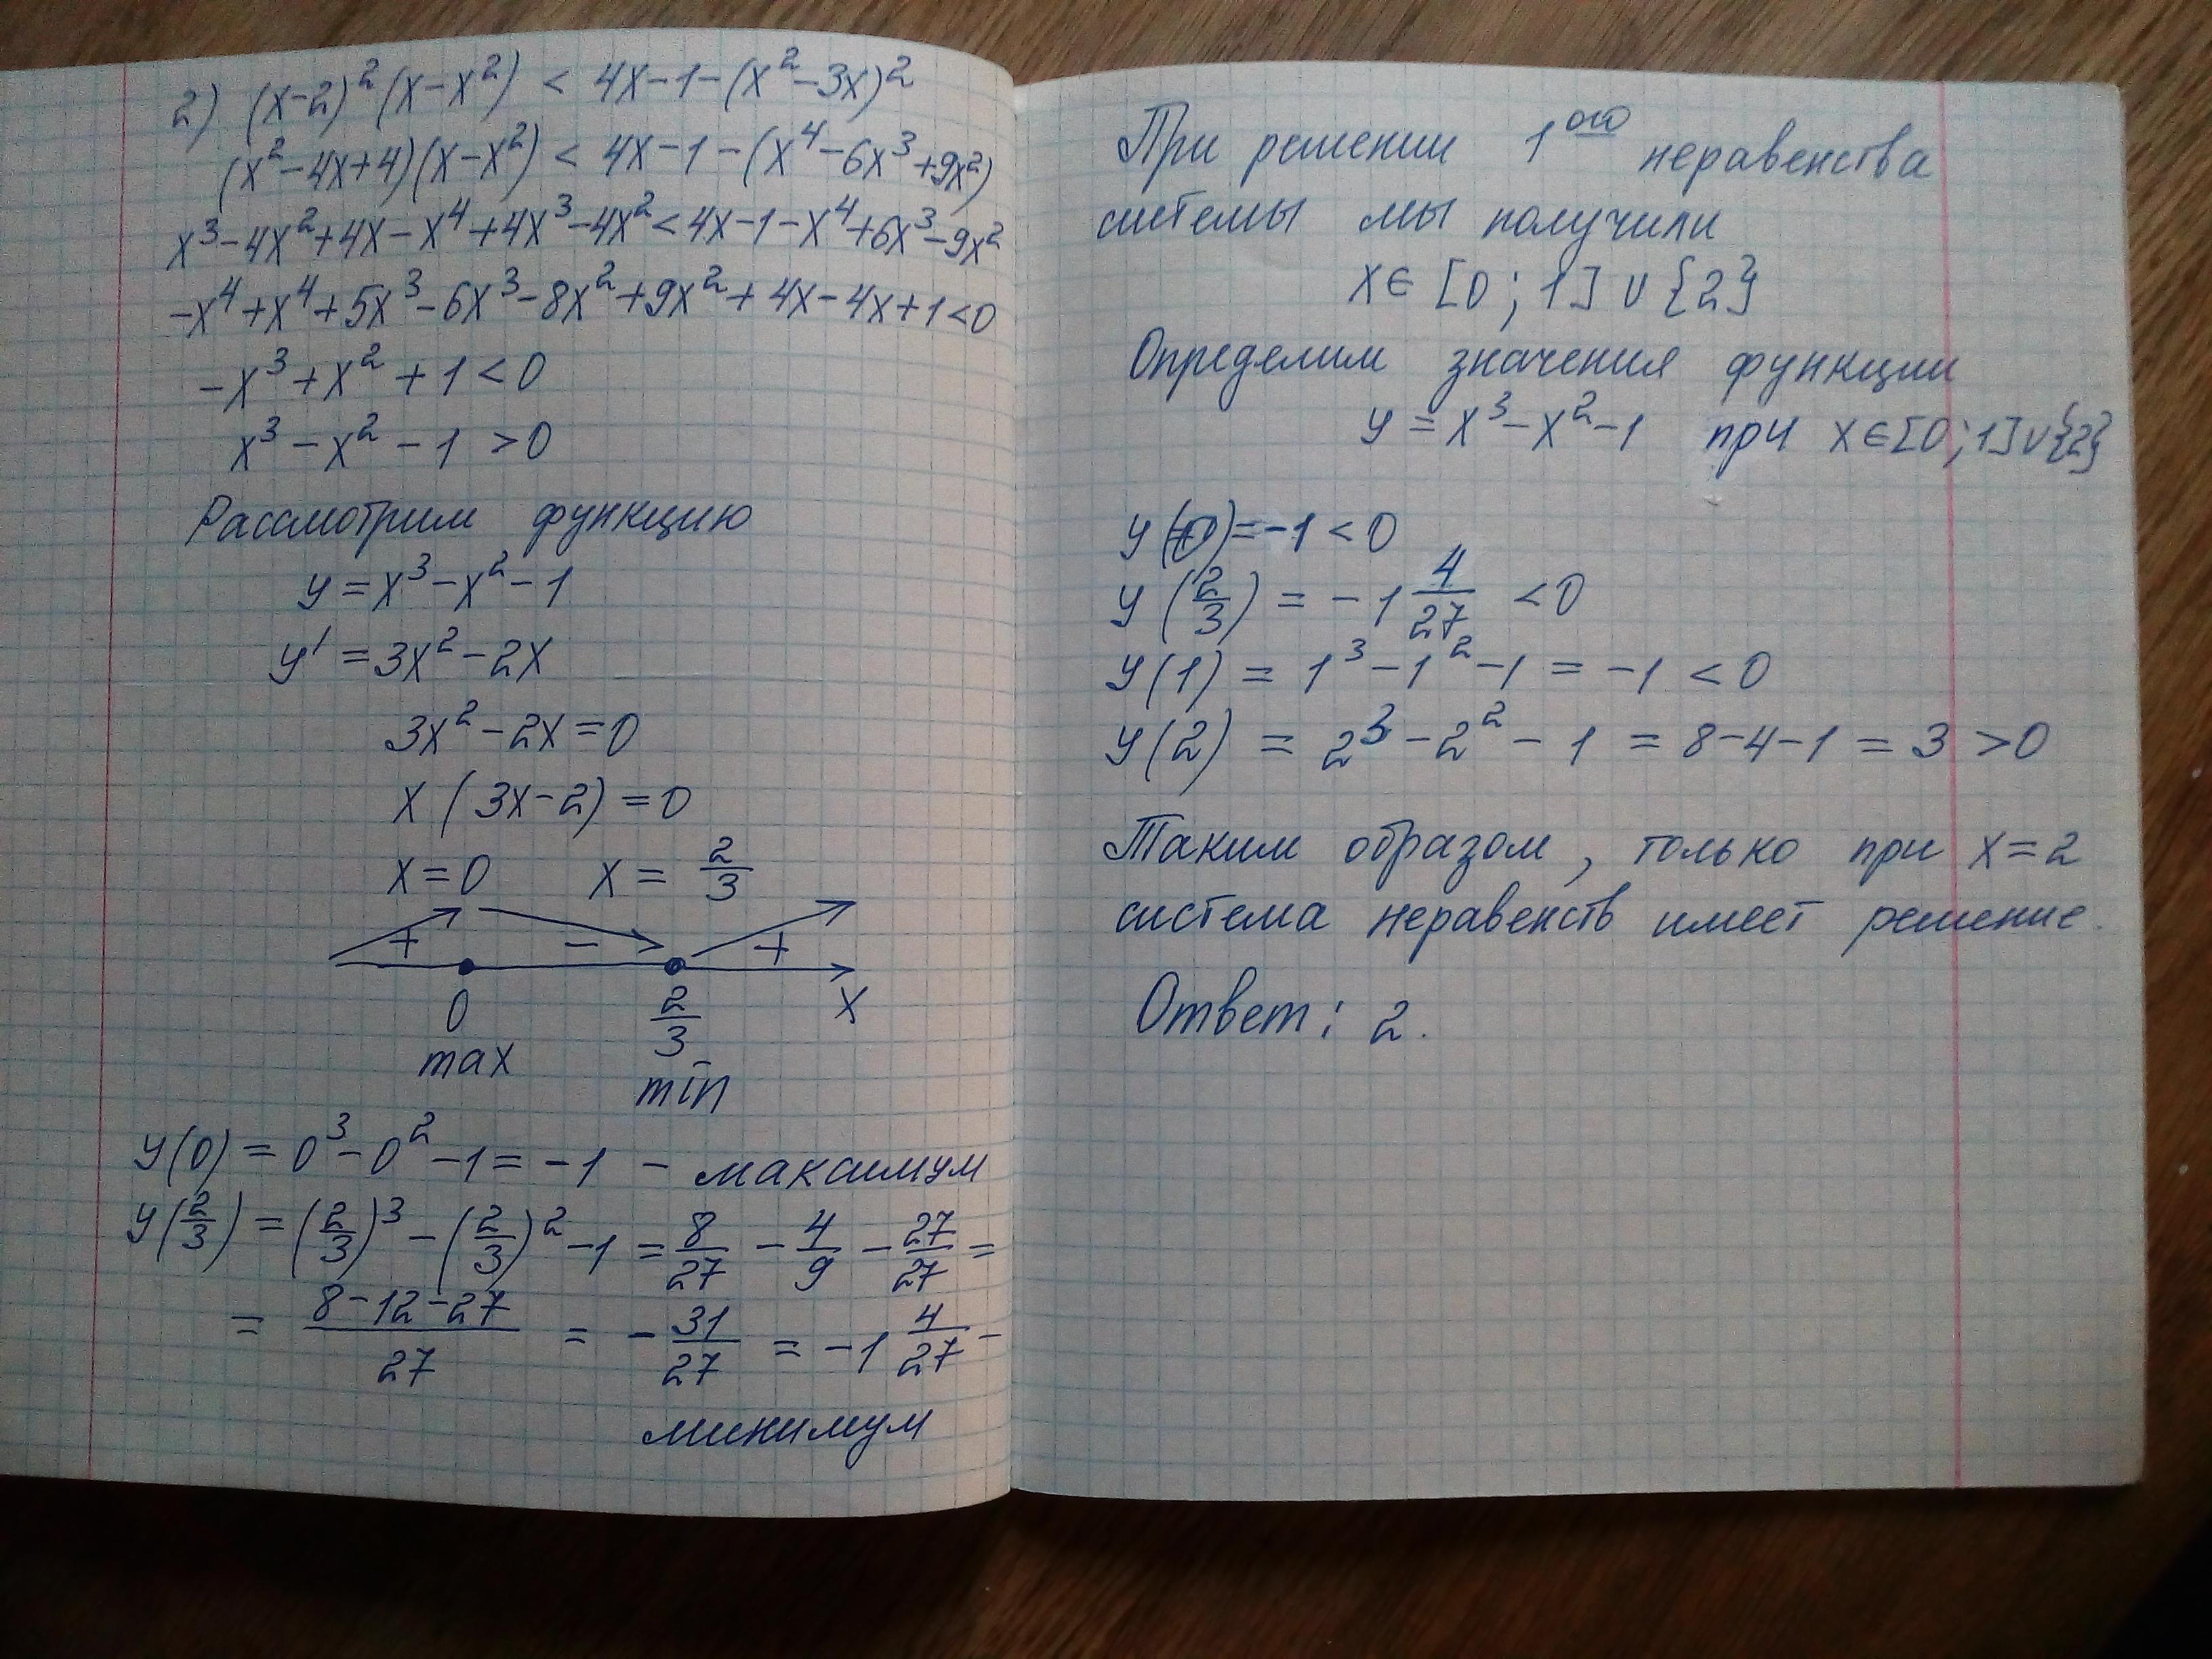 2) (x-2)²(x-x²) < 4x-1-(x²-3x)²
(x²-4x+4)(x-x²) < 4x-1-(x⁴-6x³+9x²)
x³-4x²+4x-x⁴+4x³-4x²<4x-1-x⁴+6x³-9x²
-x⁴+x⁴+5x³-6x³-8x²+9x²+4x-4x+1<0
-x³+x²+1<0
x³-x²-1 >0
Рассмотрим функцию
y=x³-x²-1
y'=3x²-2x
3x²-2x=0
x(3x-2)=0
x=0 x=2/3
+ - +
0 2/3 x
max min
y(0)=0³-0²-1=-1 - максимум
y(2/3)=(2/3)³-(2/3)²-1=8/27-4/9-27/27=
= (8-12-27)/27 = -31/27 = -1 4/27 -
минимум
При решении 1ого неравенства
системы мы получили
x∈[0;1]∪{2}
Определим значения функции
y=x³-x²-1 при x∈[0;1]∪{2}
y(0)=-1<0
y(2/3)=-1 4/27 <0
y(1)=1³-1²-1=-1<0
y(2)=2³-2²-1=8-4-1=3>0
Таким образом, только при x=2
система неравенств имеет решение.
Ответ: 2.